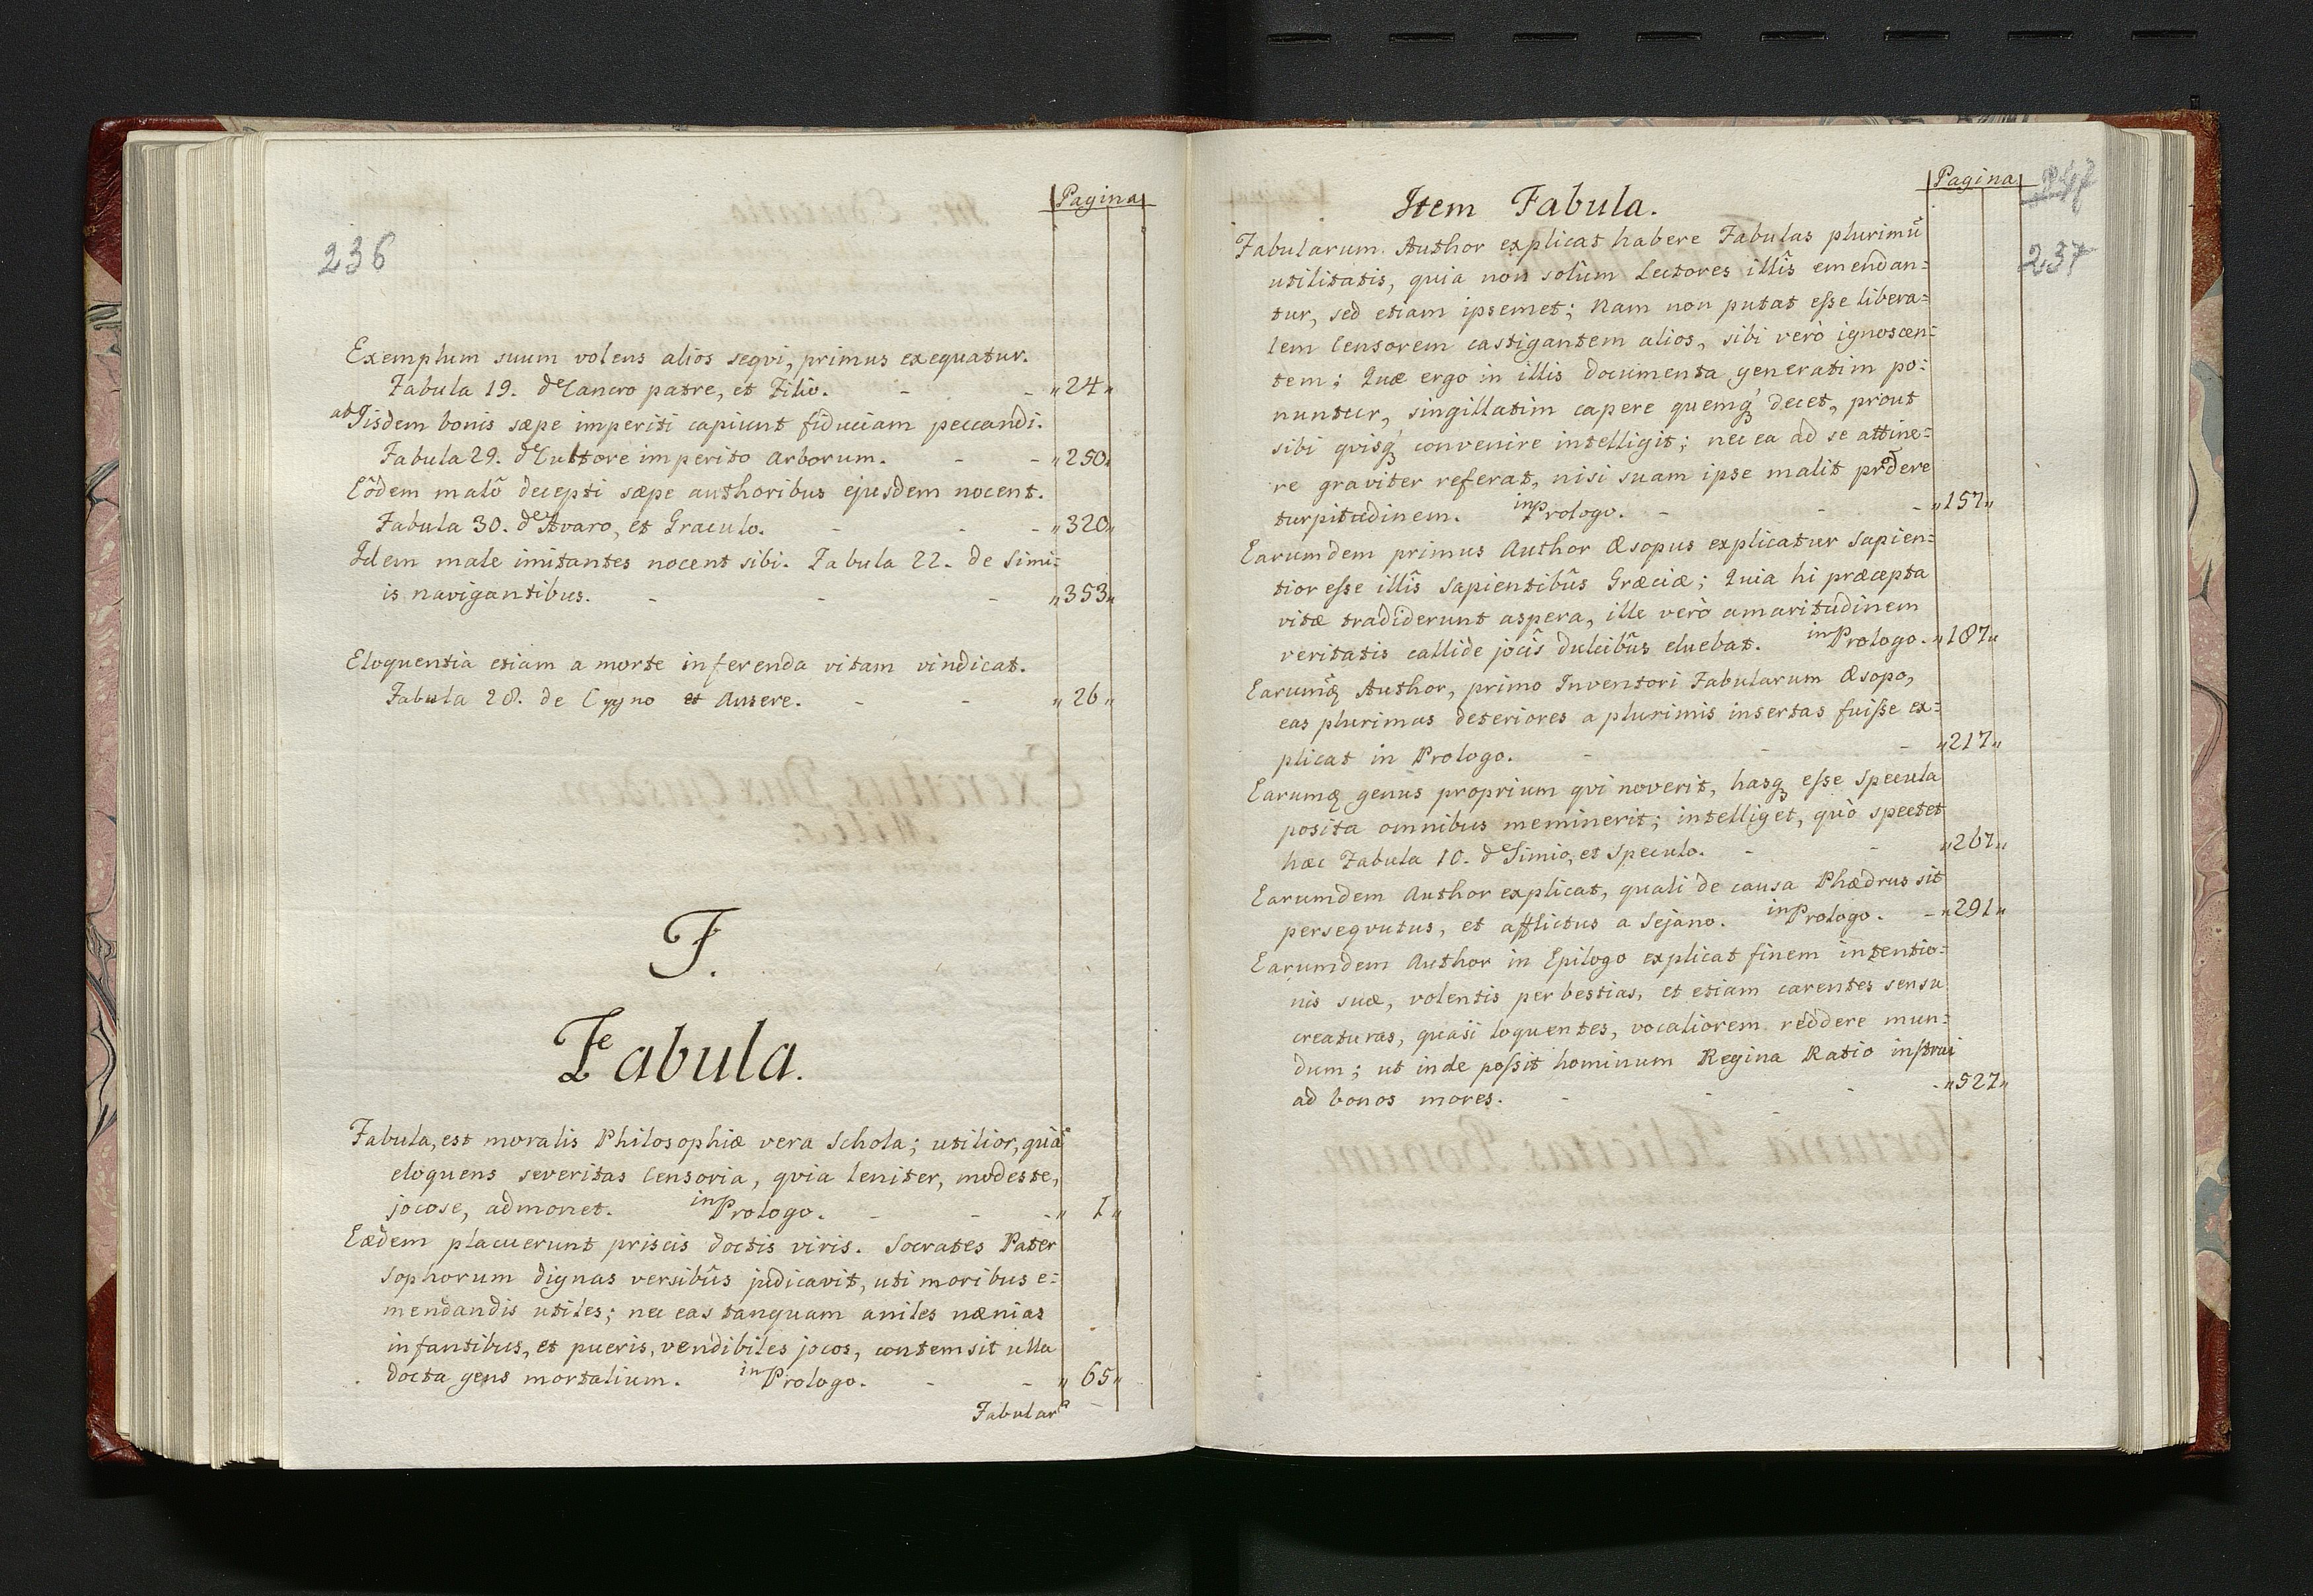 Pagina
236
Exemplum suum volens alios seqvi, primus exequatur.
Fabula 19. de Cancro patre, et Filio. - - „24„
ab Iisdem bonis sæpe imperiti capiunt fiduciam peccandi.
Fabula 29. de Cultore imperito arborum. - - „250„
Eôdem malô decepti sæpe authoribus ejusdem nocent.
Fabula 30. de Avaro, et Graculo. - - - „320„
Idem male imitantes nocent sibi. Fabula 22. de Simi:
is navigantibus. - - - „353„
Eloquentia etiam a morte inferenda vitam vindicat.
Fabula 28. de Cygno et Ansere. - - „26„
F.
Fabula.
Fabula, est moralis Philosophiæ vera Schola; utilior, quā
eloquens severitas Censoria, qvia leniter, modeste,
jocose, admonet. in Prologo. - - - „ 1„
Eædem placuerunt priscis doctis viris. Socrates Pater
Sophorum dignas versibûs judicavit, uti moribus e:
mendandis utiles; nec eas tanquam aniles nænias
infantibus, et pueris, vendibiles jocos, contemsit ulla
docta gens mortalium. in Prologo. - - „65„
Fabular
Item Fabula.
Pagina
237
Fabularum Author explicat habere Fabulas plurimū
utilitatis, quia non solùm Lectores illîs emendan:
tur, sed etiam ipsemet; Nam non putat eſse libera:
lem Censorem castigantem alios, sibi verò ignoscen:
tem; Quæ ergo in illis documenta generatim po:
nuntur, singillatim capere quemqꝫ decet, prout
sibi qvisqꝫ convenire intelligit; nec ea ad se attine:
re graviter referat, nisi suam ipse malit prodere
turpitudinem. in Prologo. - - - „157„
Earumdem primus Author Æsopus explicatur sapien:
tior eſse illîs Sapientibûs Græciæ; Quia hi præcepta
vitæ tradiderunt aspera, ille verò amaritudinem
veritatis callide jocîs dulcibûs eluebat. in Prologo. - „187„
Earumqꝫ Author, primo Inventori Fabularum Æsopo,
eas plurimas deteriores a plurimis insertas fuiſse ex:
plicat in Prologo. - - - „217„
Earumqꝫ genus proprium qvi noverit, hasqꝫ eſse Specula
posita omnibus meminerit; intelliget, quò spectet
hæc Fabula 10. de Simio, et Speculo. - - „267„
Earumdem Author explicat, quali de causa Phædrus sit
perseqvutus, et afflictus a Sejano. in Prologo. - „291„
Earumdem Author in Epilogo explicat finem intentio:
nis suæ, volentis per bestias, et etiam carentes sensu
creaturas, quasi loquentes, vocaliorem reddere mun:
dum; ut inde poſsit hominum Regina Ratio inſtrui
ad bonos mores. - - - - „527„